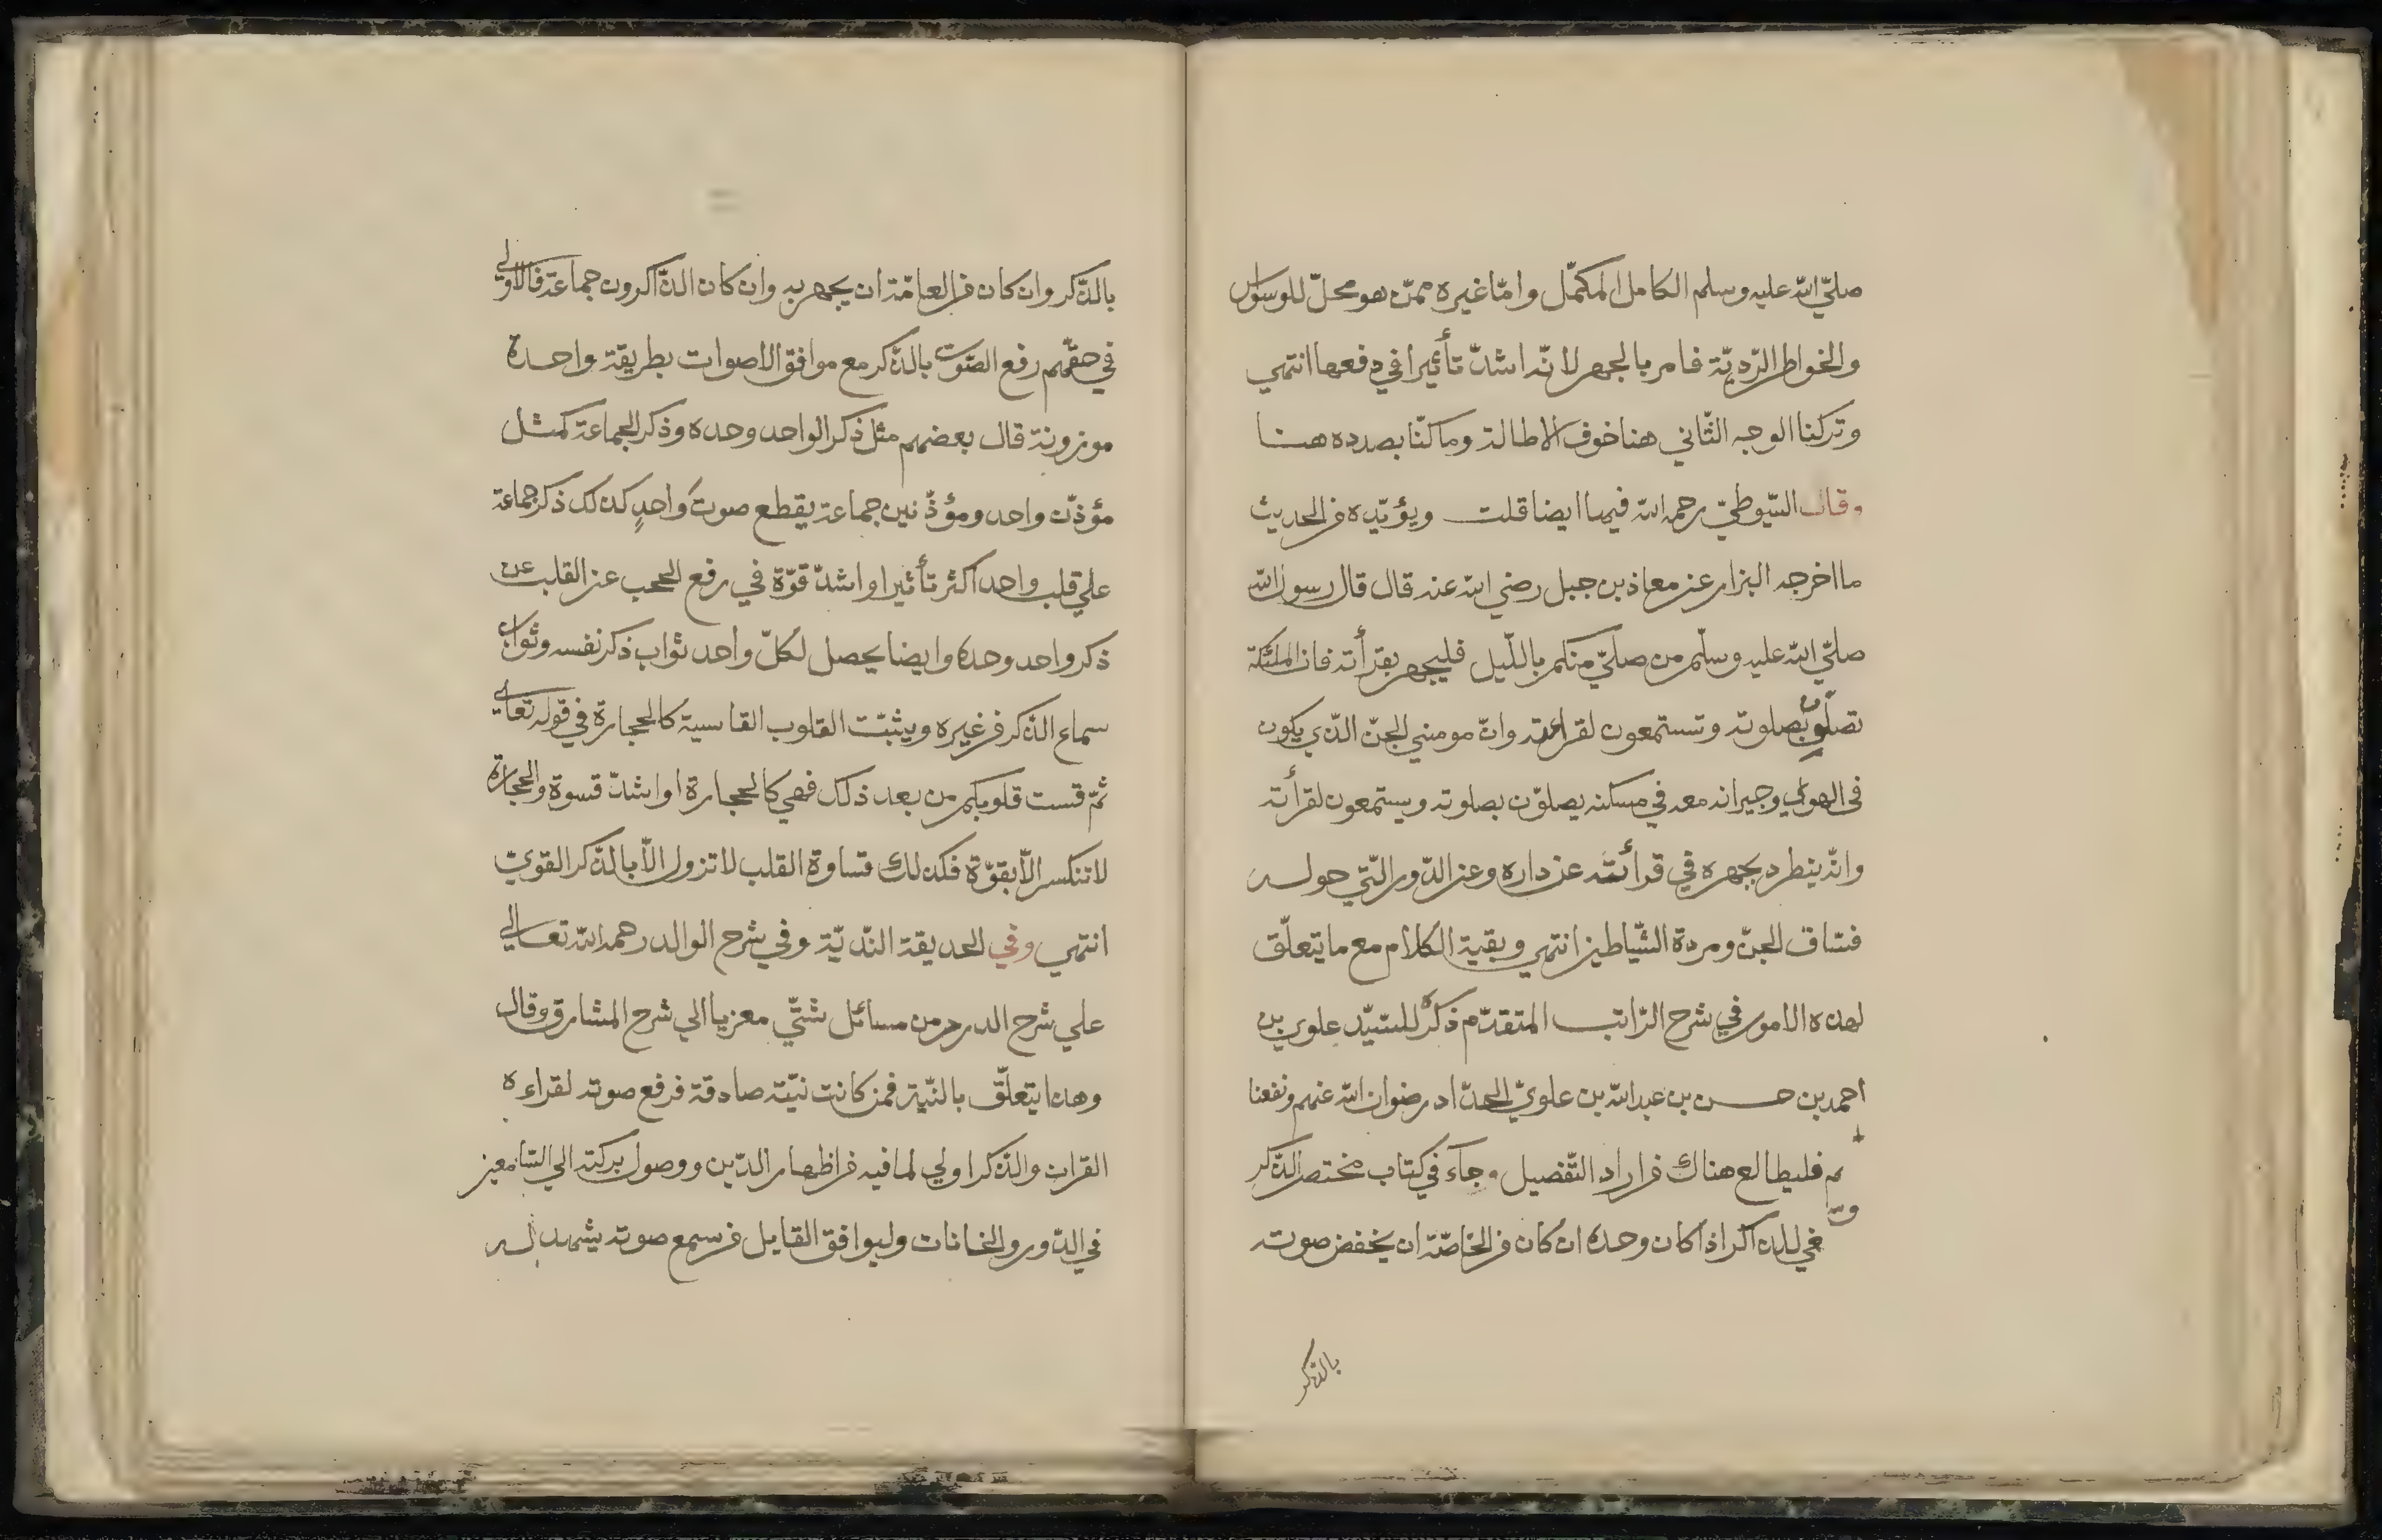 صلّي الله عليه وسلم الكامل المكمّل وامّا غيره ممّن هو محلّ للوسواس
والخواطر الرّديّة فامر بالجهر لانّه اشدّ تأثيرا في دفعها انتهي
وتركنا الوجه الثّاني هنا خوف الاطالة وما كنّا بصدده هنا
وقال السّيوطيّ رحمه الله فيها ايضا قلت ويؤيّده من الحديث
ما اخرجه البزار عن معاذ بن جبل رضي الله عنه قال قال رسول الله
صلّي الله عليه وسلّم من صلّي منكم بالليل فليجهر بقرأته فان الملئكة
تصلّون بصلوته وتستمعون لقرائته وانّ مومني الجنّ الذّي يكون
في الهوي وجيرانه معه في مسكنه يصلّون بصلوته ويستمعون لقرأته
وانّه ينطرد بجهره في قرأئته عن داره وعن الدّور الّتي حوله
فساق الجنّ ومردة الشّياطين انتهي وبقية الكلام مع ما يتعلّق
لهذه الامور في شرح الرّاتب المتقدّم ذكره للسّيّد علوي بن
احمد بن حسن بن عبدالله بن علويّ الحدّاد رضوان الله عنهم ونفعنا
بهم فليطالع هناك من اراد التّفصيل وجآء في كتاب مختصر الذّكر
وينبغي للذاكر اذا كان وحده ان كان من الخاصّة ان يخفض صوته
بالذكر
بالذّكر وان كان من العامّة ان يجهر به وان كان الذّاكرون جماعة فالاولي
في حقّهم رفع الصّوت بالذّكر مع موافق الاصوات بطريقة واحدة
موزونة قال بعضهم مثل ذكر الواحد وحده وذكر الجماعة كمثل
مؤذّن واحد ومؤذّنين جماعة يقطع صوت واحدٍ كذلك ذكر جماعة
علي قلب واحد اكثر تأثيرا واشدّ قوّة في رفع الحجب عن القلب عن
ذكر واحد وحده وايضا يحصل لكلّ واحد ثواب ذكر نفسه وثواب
سماع الذّكر من غيره ويثبّت القلوب القاسية كالحجارة في قوله تعالي
ثمّ قست قلوبكم من بعد ذلك فهي كالحجارة او اشدّ قسوة والحجارة
لا تنكسر الاّ بقوّة فكذلك قساوة القلب لا تزول الاّ بالذّكر القويّ
انتهي وفي الحديقة النّديّة وفي شرح الوالد رحمه الله تعالي
علي شرح الدرر من مسائل شتّي معزيا الي شرح المشارق وقال
وهذا يتعلّق بالنّية فمن كانت نيّته صادقة فرفع صوته لقراءه
القران والذّكر اولي لما فيه من اظهار الدّين ووصول بركته الي السّامعين
في الدّور والخانات وليوافق القايل من سمع صوته يشهد له